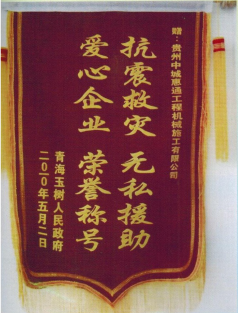 赠：贵州中城惠通工程机械施工有限公司
抗震救灾 无私援助
爱心企业 荣誉称号
青海玉树人民政府
二〇一〇年五月二日